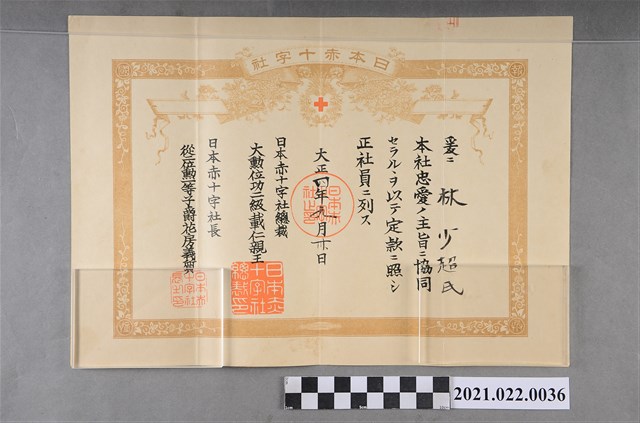 日本赤十字社
爰ニ林少超氏
本社忠愛ノ主旨ニ協同
セラルヽヲ以テ定款ニ照シ
正社員ニ列ス
大正四年九月廿日
日本赤十字社總裁
大勳位功二級載仁親王
日本赤十字社長
從二位勳一等子爵花房義質
日本赤十字社總裁印
日本赤十字社長之印
2021.022.0036